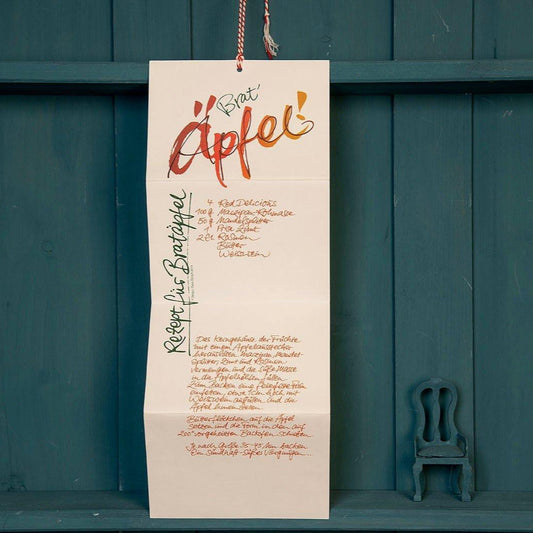 Brat'
Äpfel!
Rezept für Bratäpfel
4 Red Delicious
100 g Marzipan-Rohmasse
50 g Mandelsplitter
1 Prise Zimt
2 EL Rosinen
Butter
Weisswein
Das Kerngehäuse der Früchte
mit einem Apfelausstecher
herausstechen. Marzipan, Mandel-
splitter, Zimt und Rosinen
vermengen und die süße Masse
in die Apfelhöhlen füllen.
Zum Backen eine feuerfeste Form
einfetten, etwa 1 cm hoch mit
Weisswein auffüllen und die
Äpfel hineinsetzen.
Butterflöckchen auf die Äpfel
setzen und die Form in den auf
200° vorgeheizten Backofen schieben.
Je nach Größe 35-45 Min. backen.
Ein sündhaft-süßes Vergnügen...